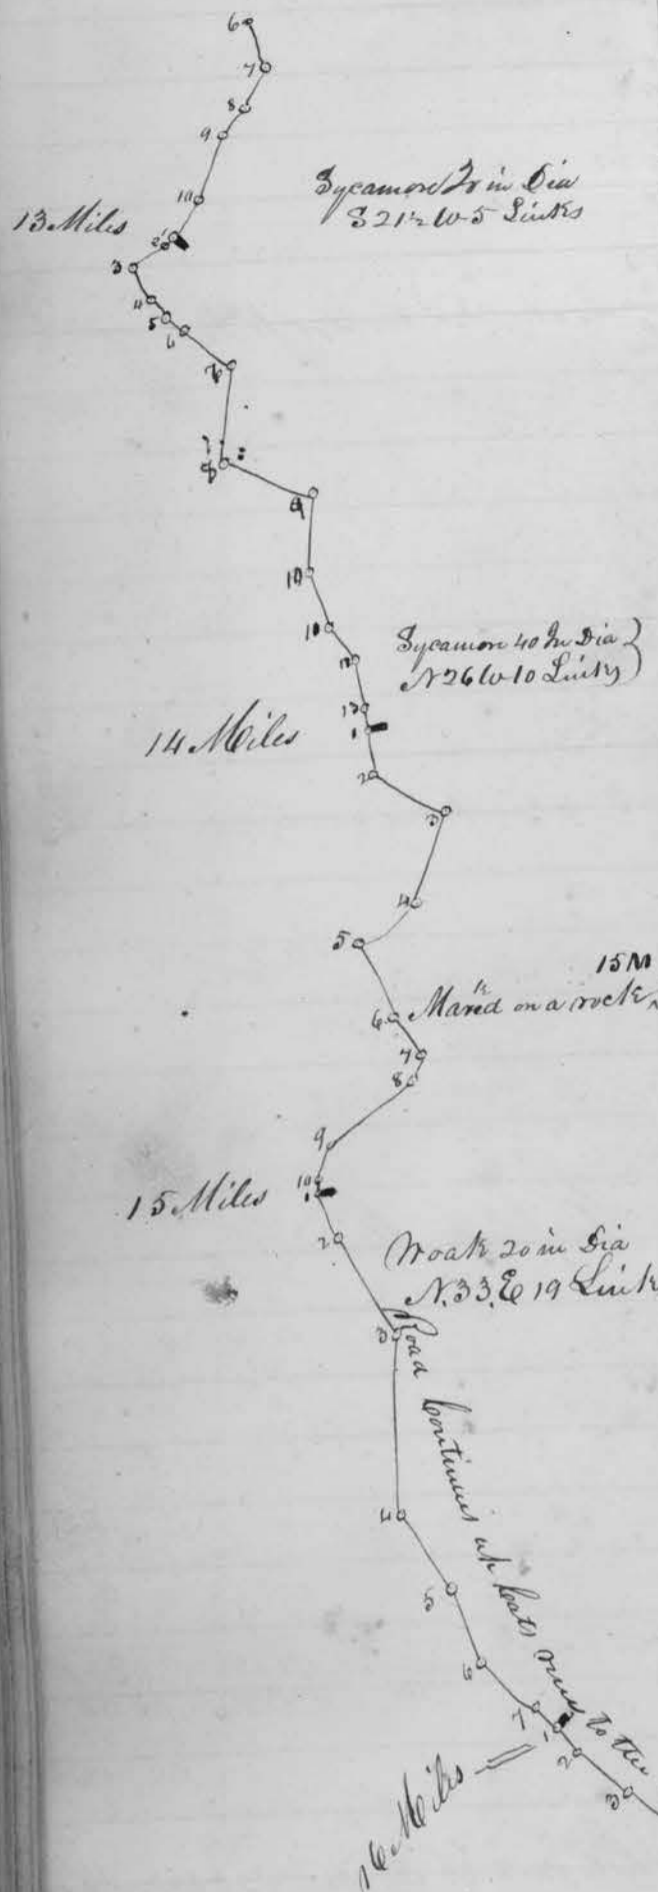 6
7
8
9
10
Sycamore in Dia
S 21½ W 5 Links
13 Miles
2
1
3
4
5
6
7
8
9
10
11
12
Sycamore 40 In Dia
N 26 W 10 Links
13
14 Miles
1
2
3
4
5
15M
Marked on a rock
6
7
8
9
10
15 Miles
1
2
Woak 20 in Dia
N. 33. E 19 Link
3
Road Continues up Coats run to the
4
5
6
7
1
2
3
16 Miles